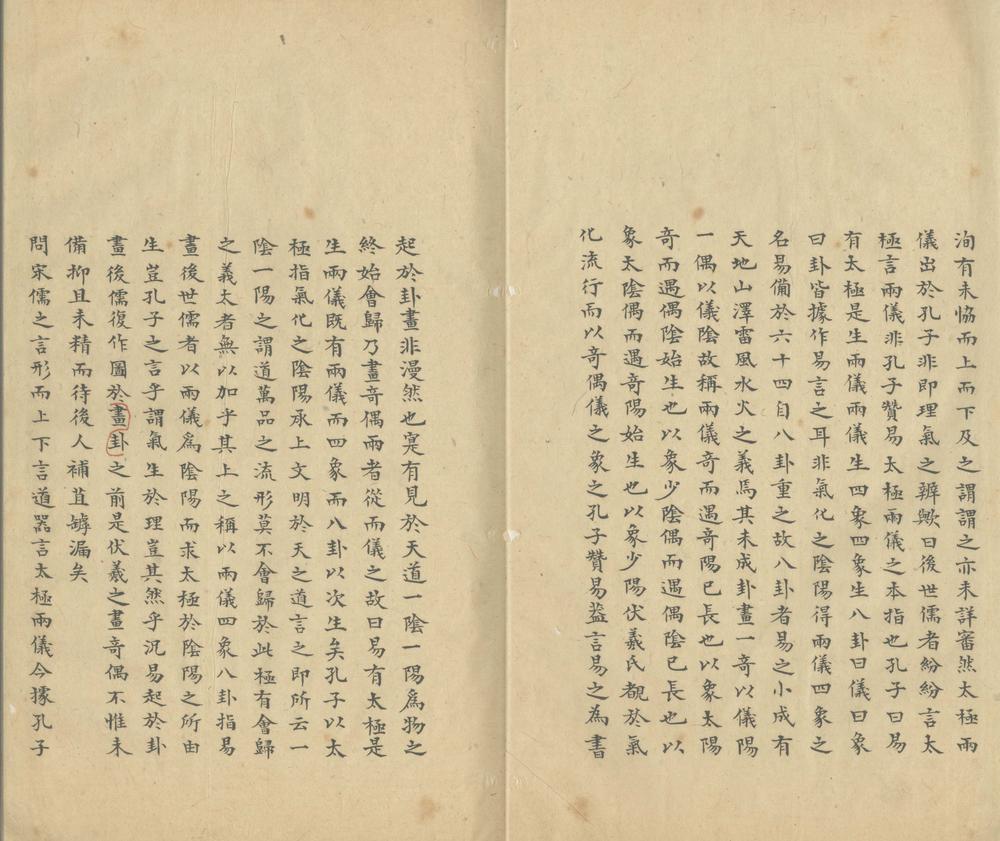 洵有未恊而上而下及之謂謂之亦未詳審然太極兩
儀出於孔子非即理氣之辨歟曰後世儒者紛紛言太
極言兩儀非孔子贊易太極兩儀之本指也孔子曰易
有太極是生兩儀兩儀生四象四象生八卦曰儀曰象
曰卦皆據作易言之耳非氣化之陰陽得兩儀四象之
名易備於六十四自八卦重之故八卦者易之小成有
天地山澤雷風水火之義焉其未成卦畫一奇以儀陽
一偶以儀陰故稱兩儀奇而遇奇陽已長也以象太陽
奇而遇偶陰始生也以象少陰偶而遇偶陰已長也以
象太陰偶而遇奇陽始生也以象少陽伏羲氏覩於氣
化流行而以奇偶儀之象之孔子贊易葢言易之為書
起於卦畫非漫然也寔有見於天道一陰一陽爲物之
終始會歸乃畫奇偶兩者從而儀之故曰易有太極是
生兩儀既有兩儀而四象而八卦以次生矣孔子以太
極指氣化之陰陽承上文明於天之道言之即所云一
陰一陽之謂道萬品之流形莫不會歸於此極有會歸
之義太者無以加乎其上之稱以兩儀四象八卦指易
畫後世儒者以兩儀爲陰陽而求太極於陰陽之所由
生豈孔子之言乎謂氣生於理豈其然乎況易起於卦
畫後儒復作圖於畫卦之前是伏羲之畫奇偶不惟未
備抑且未精而待後人補苴罅漏矣
問宋儒之言形而上下言道器言太極兩儀今據孔子